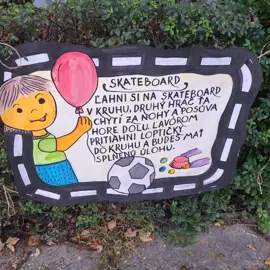 SKATEBOARD
ĽAHNI SI NA SKATEBOARD
V KRUHU, DRUHÝ HRÁČ ŤA
CHYTÍ ZA NOHY A POSÚVA
HORE DOLU. LAVÓROM
PRITIAHNI LOPTIČKY
DO KRUHU A BUDEŠ MAŤ
SPLNENÚ ÚLOHU.